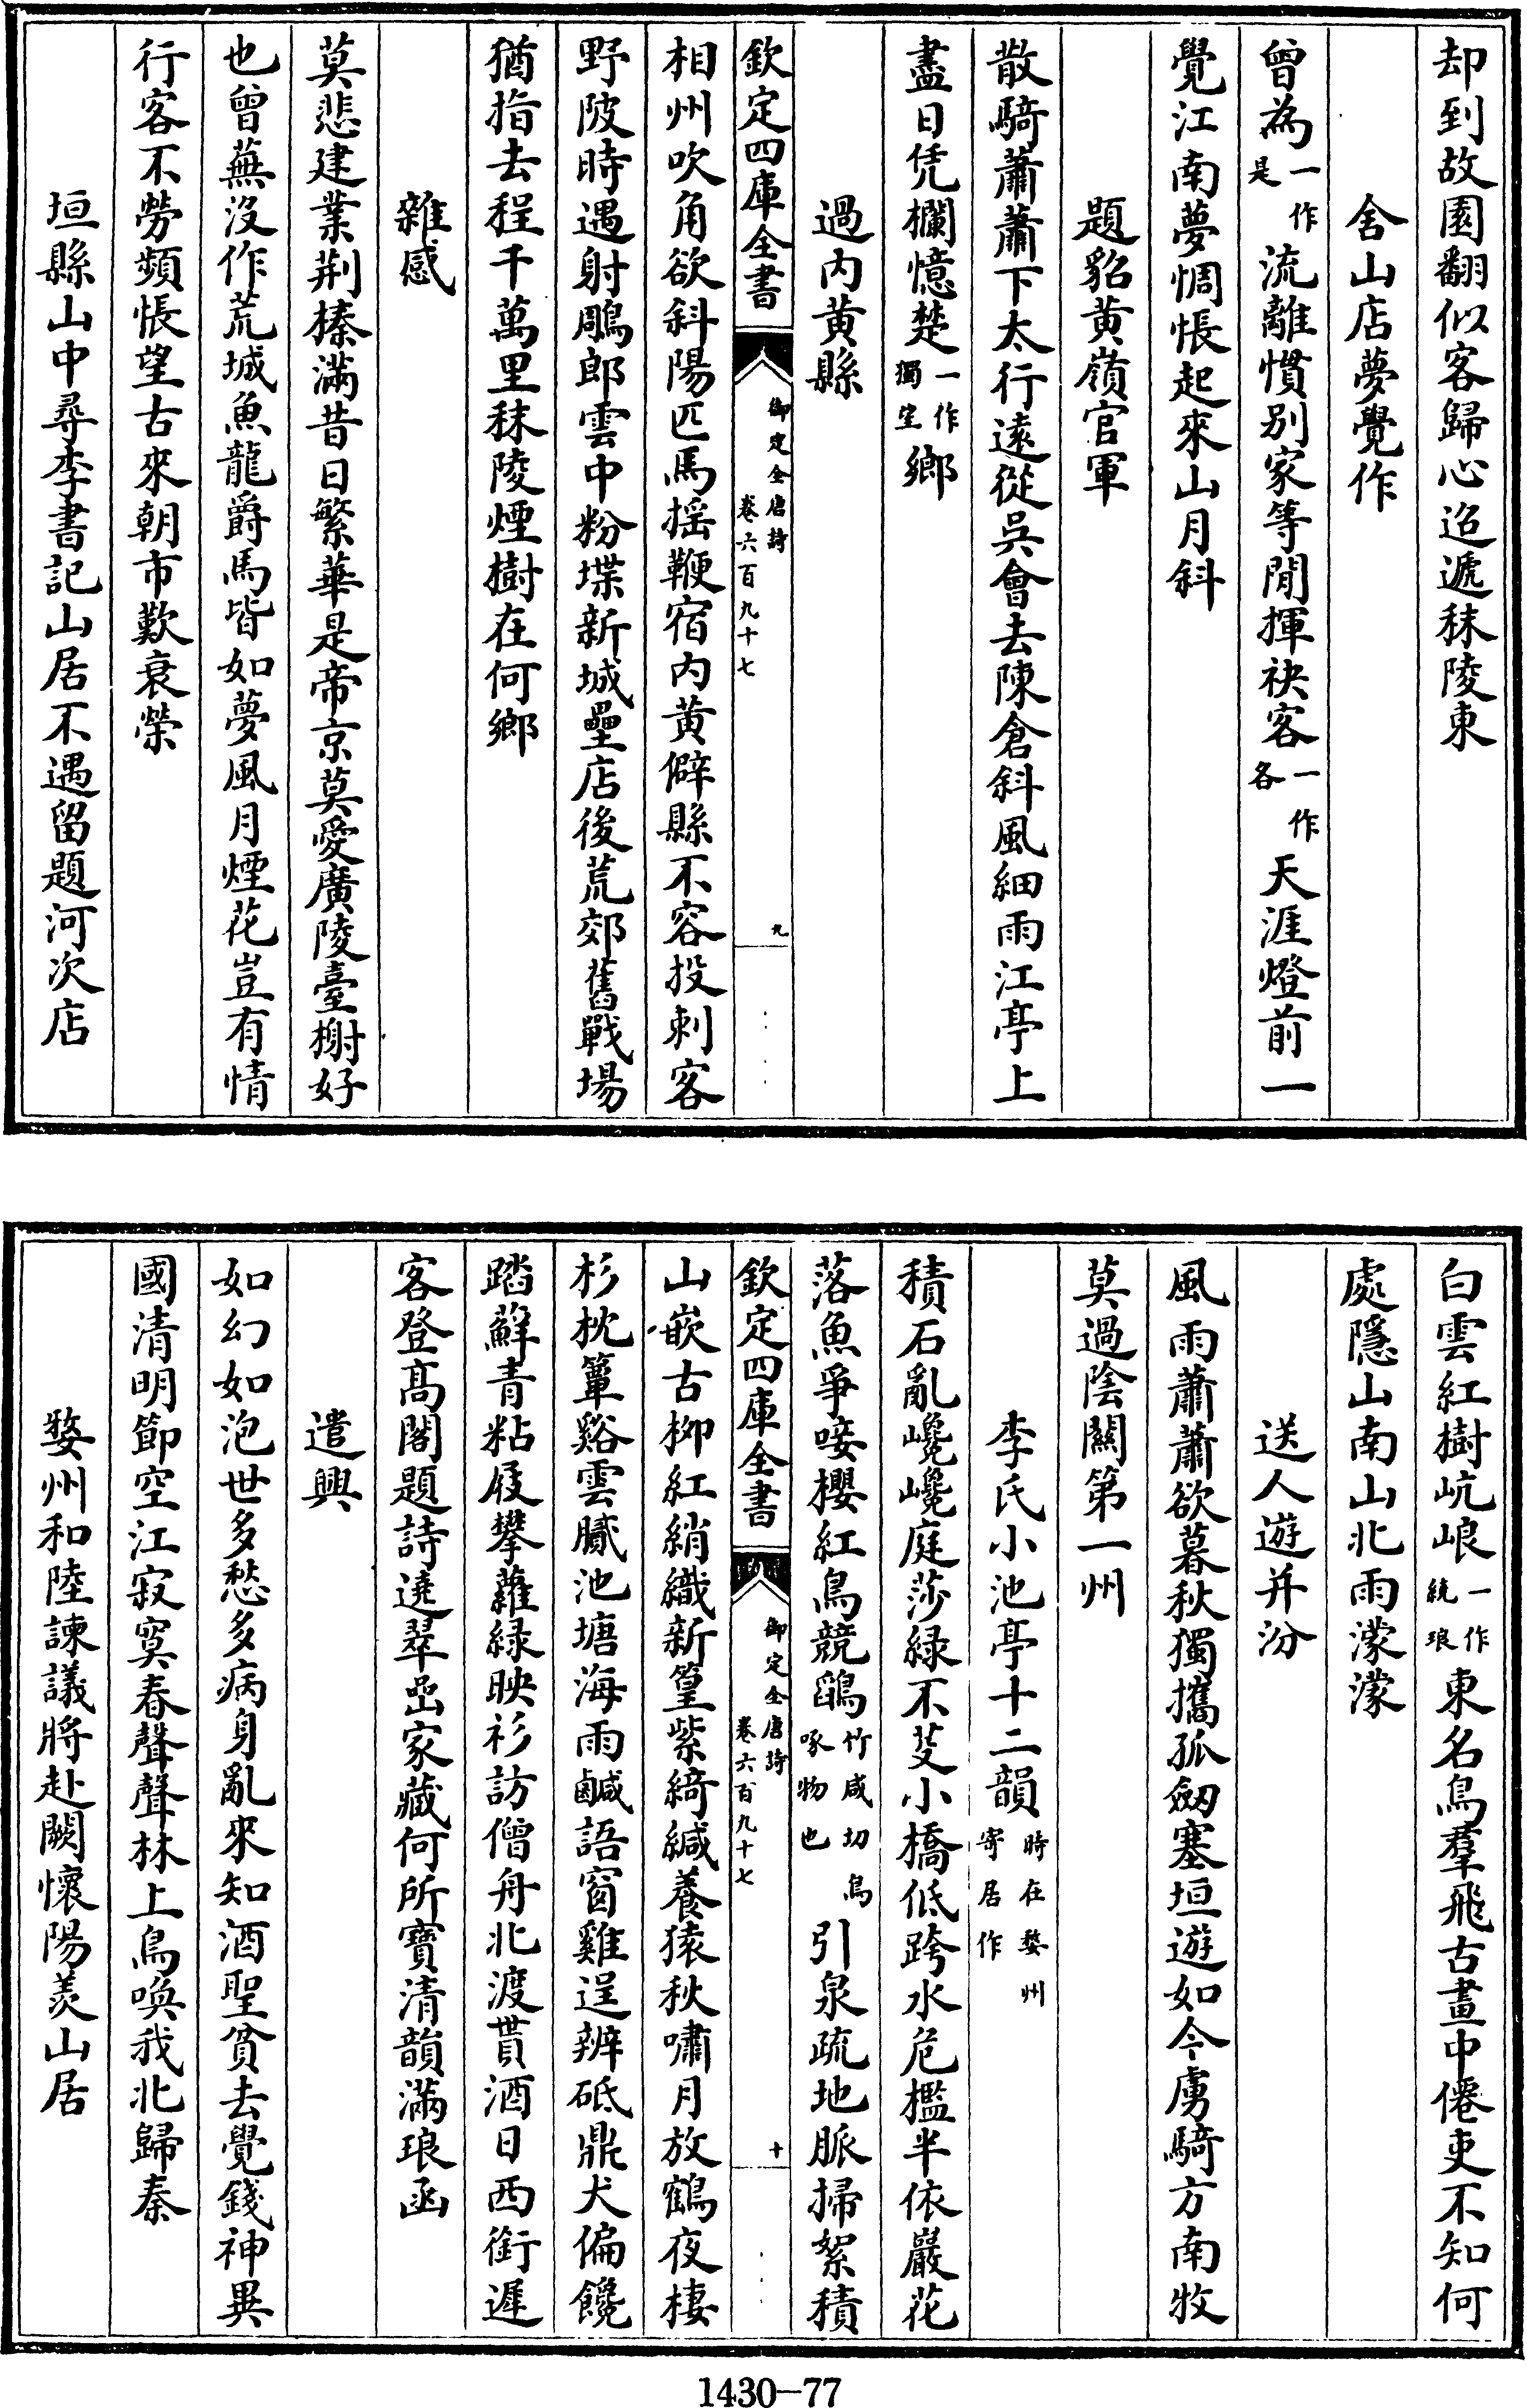 却到故園翻似客歸心迢遞秣陵東
含山店夢覺作
曾為一作是流離慣別家等閒揮袂客一作各天涯燈前一
覺江南夢惆悵起來山月斜
題貂黃嶺官軍
散騎蕭蕭下太行遠從吳會去陳倉斜風細雨江亭上
盡日凭欄憶楚一作獨坐鄉
過內黃縣
欽定四庫全書
御定全唐詩
卷六百九十七
九
相州吹角欲斜陽匹馬揺鞭宿內黃僻縣不容投刺客
野陂時遇射鵰郎雲中粉堞新城壘店後荒郊舊戰場
猶指去程千萬里秣陵煙樹在何鄉
雜感
莫悲建業荆榛滿昔日繁華是帝京莫愛廣陵臺榭好
也曾蕪沒作荒城魚龍爵馬皆如夢風月煙花豈有情
行客不勞頻悵望古來朝市歎衰榮
垣縣山中尋李書記山居不遇留題河次店
白雲紅樹㟁㟍一作統琅東名鳥羣飛古畫中僊吏不知何
處隱山南山北雨濛濛
送人遊并汾
風雨蕭蕭欲暮秋獨攜孤劒塞垣遊如今虜騎方南牧
莫過陰關第一州
李氏小池亭十二韻時在婺州寄居作
積石亂巉巉庭莎緑不芟小橋低跨水危檻半依巖花
落魚爭唼櫻紅鳥競鵮竹咸切鳥啄物也引泉疏地脈掃絮積
欽定四庫全書
御定全唐詩
卷六百九十七
十
山嵌古栁紅綃織新篁紫綺緘養猿秋嘯月放鶴夜棲
杉枕簟谿雲膩池塘海雨鹹語窗雞逞辨砥鼎犬偏饞
踏蘚青粘屐攀蘿緑映衫訪僧舟北渡貰酒日西銜遲
客登髙閣題詩遶翠喦家藏何所寶清韻滿琅函
遣興
如幻如泡世多愁多病身亂來知酒聖貧去覺錢神異
國清明節空江寂寞春聲聲林上鳥喚我北歸秦
婺州和陸諫議將赴闕懷陽羡山居
1430-77